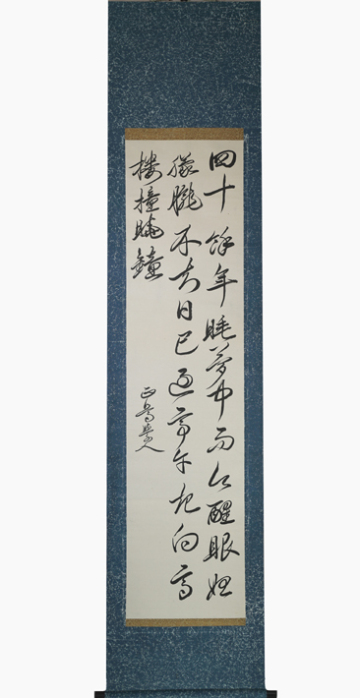 四十餘年睡夢中而今醒眼始
朦朧不知日已過亭午起向高
樓撞曉鐘